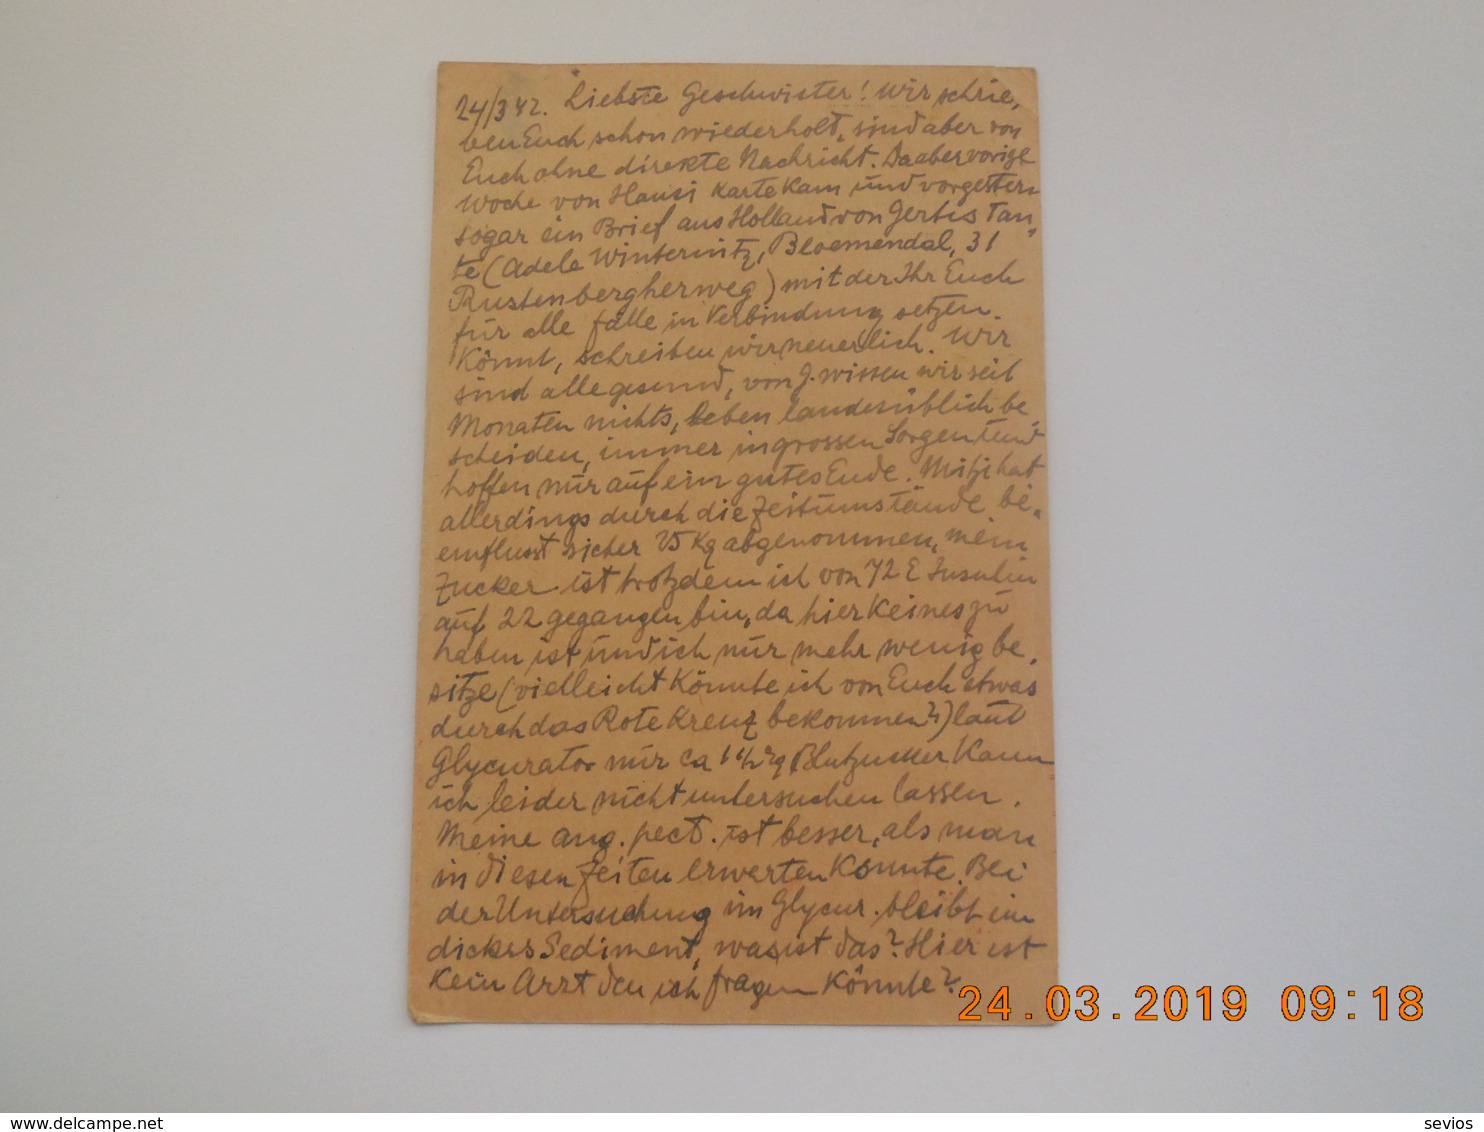 24/3 42. Liebste Geschwister! Wir schrie,
ben Euch schon wiederholt, sind aber von
Euch ohne direkte Nachricht. Da aber vorige
Woche von Hansi Karte kam und vorgestern
sogar ein Brief aus Holland von Gertis Tan,
te (Adele Winternitz, Bloemendal, 31
Rustenbergherweg) mit der Ihr Euch
für alle Fälle in Verbindung setzen
Könnt, schreiben wir neuerlich. Wir
sind alle gesund, von J. wissen wir seit
Monaten nichts, leben landesüblich be
scheiden, immer in grossen Sorgen und
hoffen nur auf ein gutes Ende. Mitzi hat
allerdings durch die Zeitumstände be,
einflusst sicher 25 Kg abgenommen, mein
Zucker ist trotzdem ich von 72 E Insulin
auf 22 gegangen bin, da hier Keines zu
haben ist und ich nur mehr wenig be,
sitze (vielleicht Könnte ich von Euch etwas
durch das Rote Kreuz bekommen?) laut
Glycurator nur ca 1 1/2 % Blutzucker Kann
ich leider nicht untersuchen lassen.
Meine ang. pect. ist besser, als man
in diesen Zeiten erwarten Konnte. Bei
der Untersuchung im Glycur. bleibt ein
dickes Sediment, was ist das? Hier ist
Kein Arzt den ich fragen Könnte?
24.03.2019 09:18
www.delcampe.net
sevios